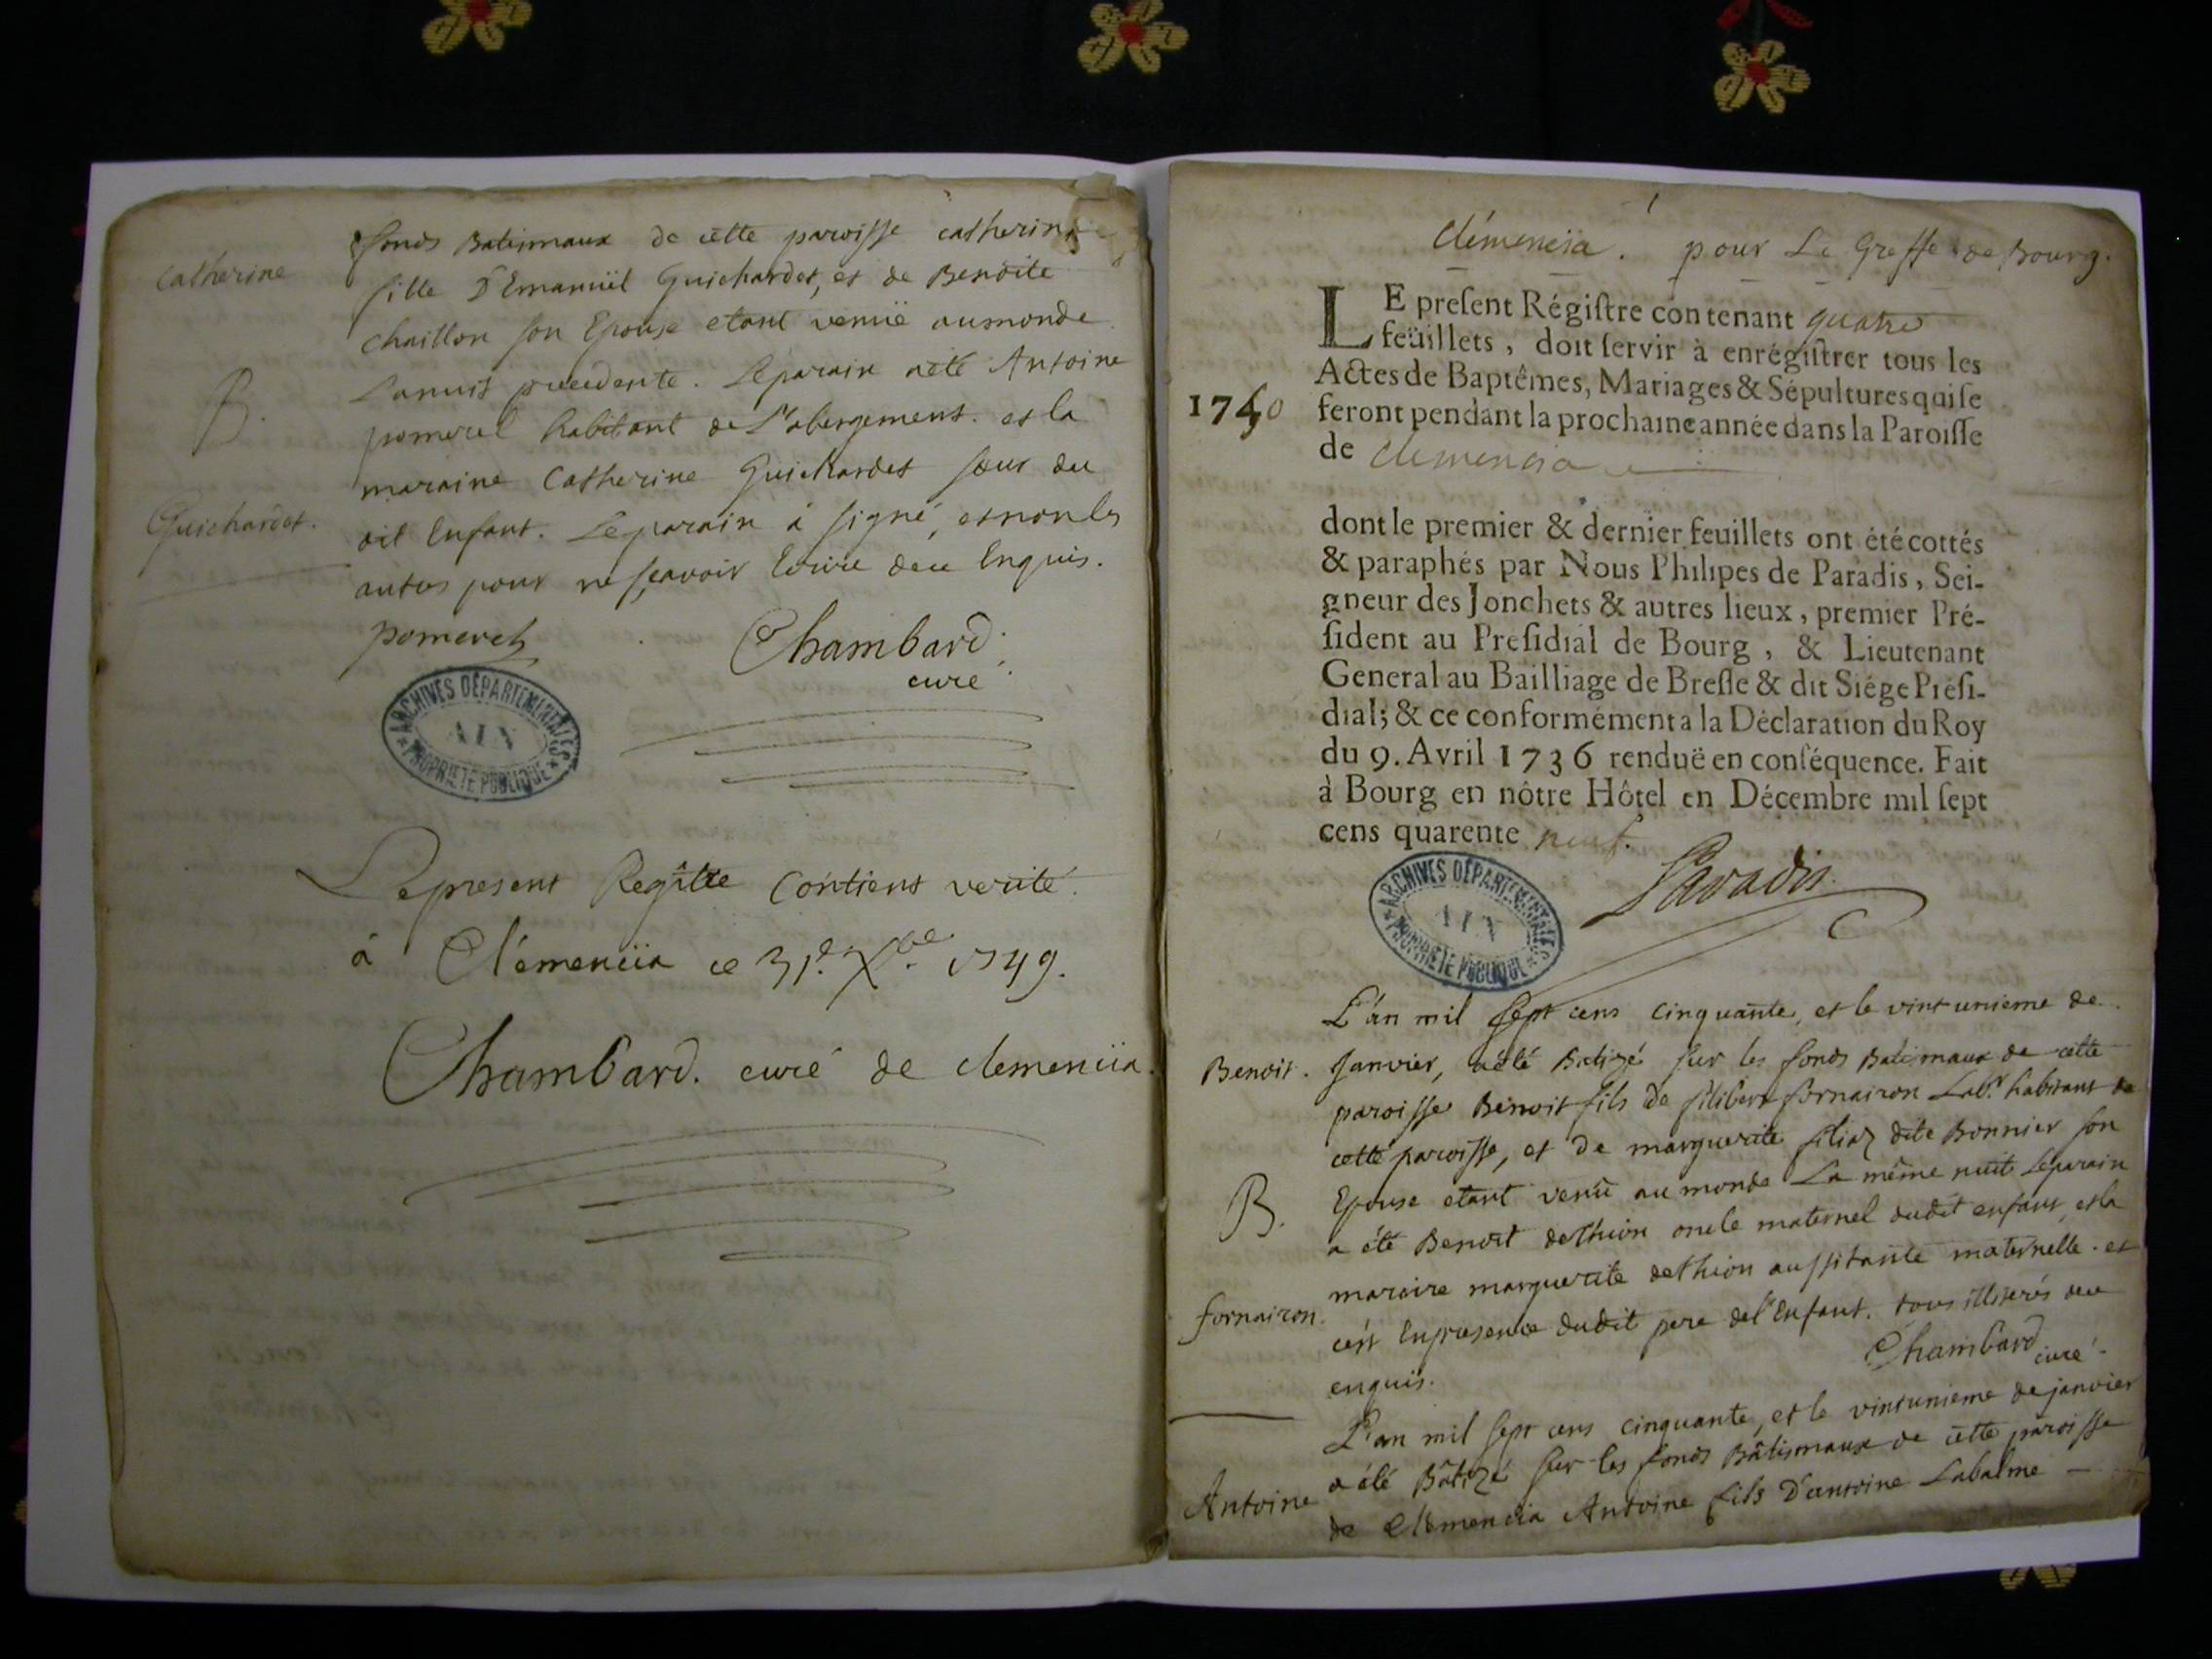 fonds Batismaux de cette paroisse catherine
Catherine
fille D'Emanuël Guichardet, et de Benoite
chaillon son Epouse etant venuë aumonde
B.
Lanuit precedente. Leparain aété Antoine
pomerel habitant de L'abergement. et la
maraine Catherine Guichardet sœur du
Guichardet.
dit Enfant. Leparain à signé, etnonles
autres pour nesçavoir Ecrire dece Enquis.
pomerel
Chambard
curé
ARCHIVES DÉPARTEMENTALES
AIN
PROPRIETE PUBLIQUE
Lepresent Regître Contient verité.
à Clémenciia ce 31e. Xbre 1749.
Chambard. curé de clemenciia.
1
Clémencia. pour Le Greffe de Bourg.
LE present Régistre contenant quatre
feüillets, doit servir à enrégistrer tous les
Actes de Baptêmes, Mariages & Sépultures qui se
1750 feront pendant la prochaine année dans la Paroisse
de Clemencia
dont le premier & dernier feuillets ont été cottés
& paraphés par Nous Philipes de Paradis, Sei-
gneur des Jonchets & autres lieux, premier Pré-
sident au Presidial de Bourg, & Lieutenant
General au Bailliage de Bresse & dit Siége Présı-
dial; & ce conformément a la Déclaration du Roy
du 9. Avril 1736 renduë en conséquence. Fait
à Bourg en nôtre Hôtel en Décembre mil sept
cens quarente neuf.
Paradis
ARCHIVES DÉPARTEMENTALES
AIN
PROPRIETE PUBLIQUE
L'an mil sept cens cinquante, et le vint unieme de
Benoit. Janvier, aété Batizé sur les fonds Batismaux de cette
paroisse Benoit fils de filibert fornairon Labr. habitant de
cette paroisse, et de marguerite filiaz dite Bonnier son
B.
Epouse etant venu aumonde La même nuit Leparain
a été Benoit dethion oncle maternel dudit enfant, etla
maraire marguerite dethion aussitante maternelle. et
fornairon.
ces Enpresence dudit pere del'Enfant. tous illiterés dece
enquis.
Chambard curé.
L'an mil sept cens cinquante, et le vintunieme de janvier
a été Bâtizé sur les fonds Bâtismaux de cette paroisse
Antoine
de Clemencia Antoine fils D'antoine Labalme